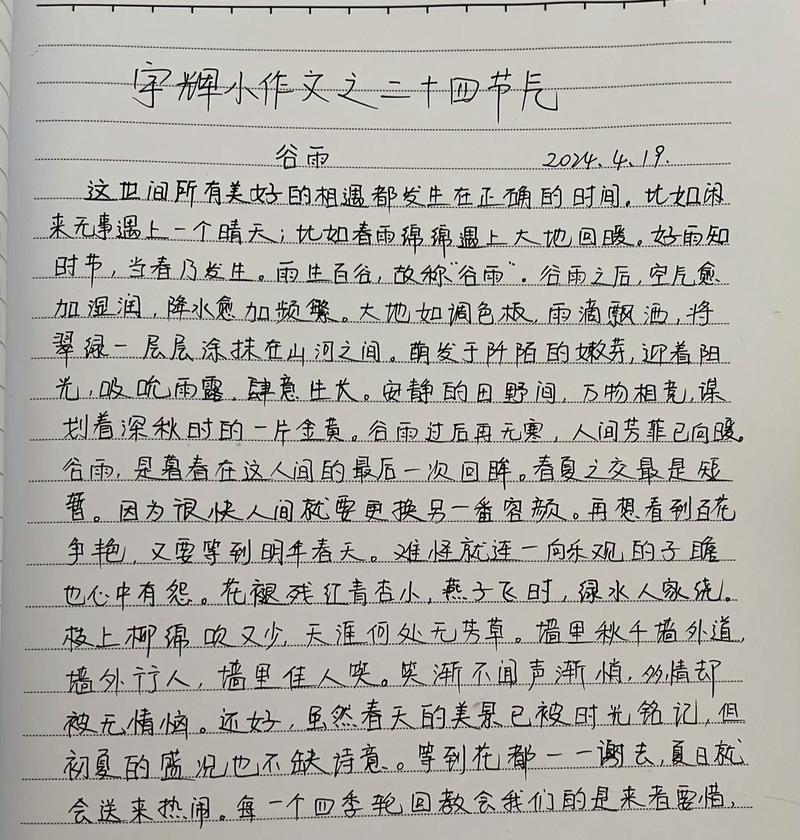 宇辉小作文之二十四节气
谷雨 2024.4.19.
这世间所有美好的相遇都发生在正确的时间。比如闲
来无事遇上一个晴天；比如春雨绵绵遇上大地回暖。好雨知
时节，当春乃发生。雨生百谷，故称“谷雨”。谷雨之后，空气愈
加湿润，降水愈加频繁。大地如调色板，雨滴飘洒，将
翠绿一层层涂抹在山河之间。萌发于阡陌的嫩芽，迎着阳
光，吸吮雨露，肆意生长。安静的田野间，万物相竞，谋
划着深秋时的一片金黄。谷雨过后再无寒，人间芳菲已向暖。
谷雨，是暮春在这人间的最后一次回眸。春夏之交最是短
暂。因为很快人间就要更换另一番容颜。再想看到百花
争艳，又要等到明年春天。难怪就连一向乐观的子瞻
也心中有怨。花褪残红青杏小，燕子飞时，绿水人家绕。
枝上柳绵吹又少，天涯何处无芳草。墙里秋千墙外道，
墙外行人，墙里佳人笑。笑渐不闻声渐悄，多情却
被无情恼。还好，虽然春天的美景已被时光铭记，但
初夏的盛况也不缺诗意。等到花都一一谢去，夏日就
会送来热闹。每一个四季轮回教会我们的是来者要惜，